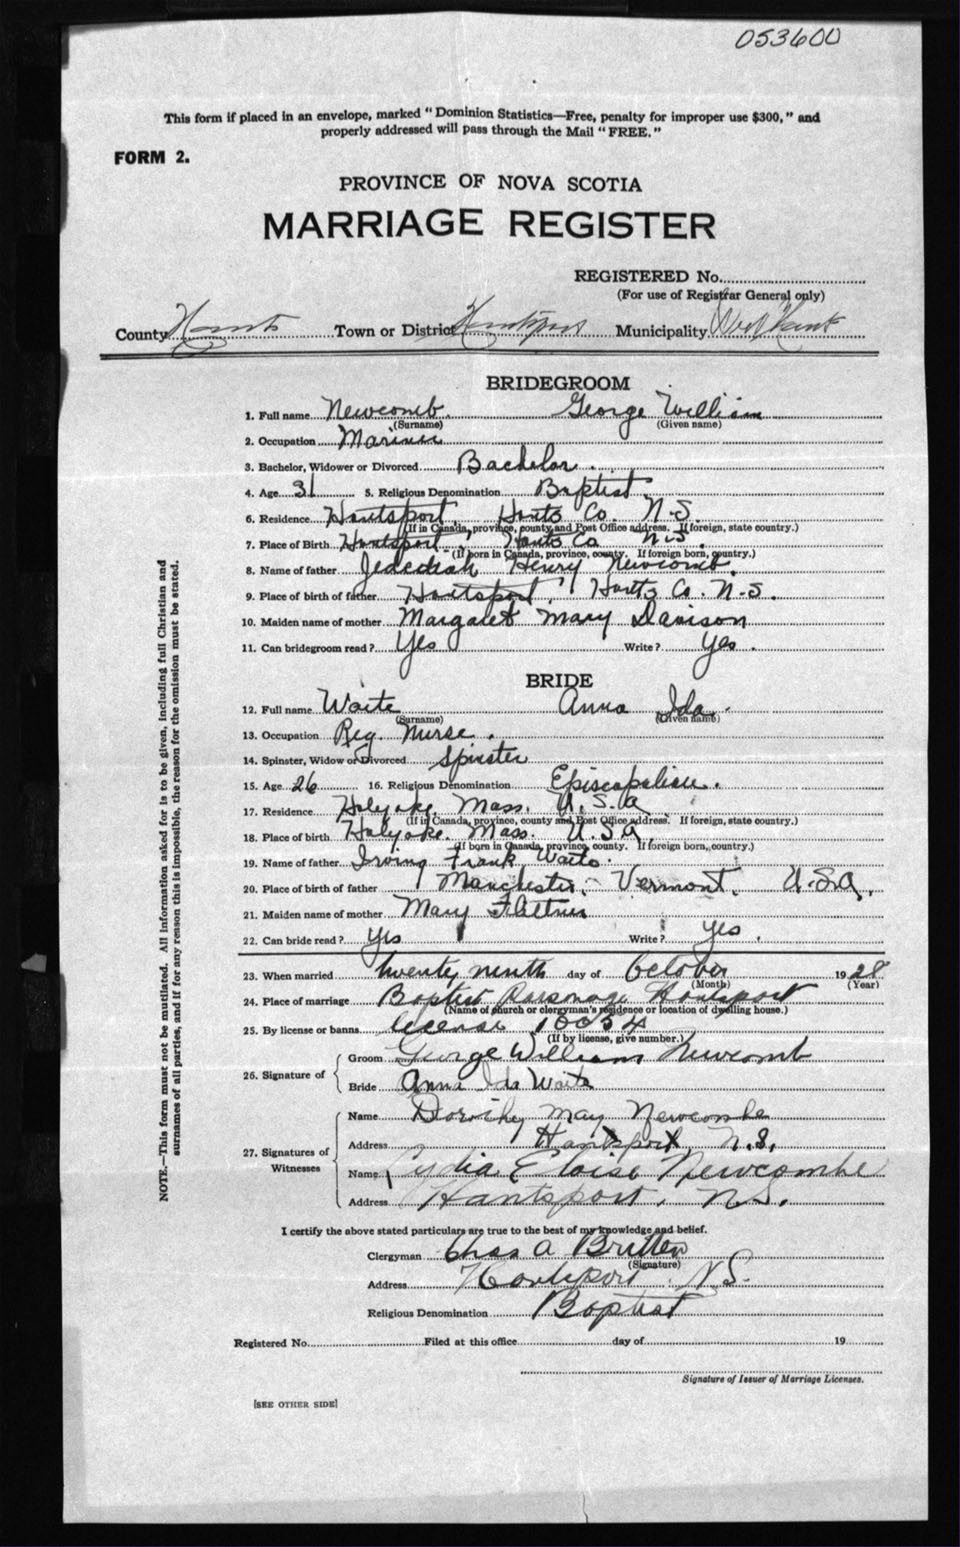 053600
This form if placed in an envelope, marked "Dominion Statistics—Free, penalty for improper use $300," and
properly addressed will pass through the Mail "FREE."
FORM 2.
PROVINCE OF NOVA SCOTIA
MARRIAGE REGISTER
REGISTERED No.
(For use of Registrar General only)
County Hants Town or District Hantsport Municipality West Hants
BRIDEGROOM
1. Full name Newcomb. George William
(Surname) (Given name)
2. Occupation Mariner
3. Bachelor, Widower or Divorced Bachelor.
4. Age 31 5. Religious Denomination Baptist
6. Residence Hantsport, Hants Co. N.S
(If in Canada, province, county and Post Office address. If foreign, state country.)
7. Place of Birth Hantsport, Hants Co N.S.
(If born in Canada, province, county. If foreign born, country.)
8. Name of father Jedediah Henry Newcomb.
9. Place of birth of father Hantsport, Hants Co. N.S.
10. Maiden name of mother Margaret Mary Davison
11. Can bridegroom read? Yes Write? Yes.
BRIDE
12. Full name Waite Anna Ida.
(Surname) (Given name)
13. Occupation Reg. Nurse.
14. Spinster, Widow or Divorced Spinster
15. Age 26 16. Religious Denomination Episcopalian.
17. Residence Holyoke Mass. U.S.A
(If in Canada, province, county and Post Office address. If foreign, state country.)
18. Place of birth Holyoke. Mass. U.S.A.
(If born in Canada, province, county. If foreign born, country.)
19. Name of father Irving Frank Waite.
20. Place of birth of father Manchester, Vermont. U.S.A.
21. Maiden name of mother Mary
22. Can bride read? Yes Write? Yes.
23. When married twenty ninth day of October 1928
(Month) (Year)
24. Place of marriage Baptist Parsonage Hantsport
(Name of church or clergyman's residence or location of dwelling house.)
25. By license or banns license 10054
(If by license, give number.)
26. Signature of
Groom George William Newcomb
Bride Anna Ida Waite
27. Signatures of Witnesses
Name Dorothy May Newcombe
Address Hantsport N.S.
Name Lydia Eloise Newcombe
Address Hantsport. N.S.
I certify the above stated particulars are true to the best of my knowledge and belief.
Clergyman Chas A Britten
(Signature)
Address Hantsport N.S.
Religious Denomination Baptist
Registered No. Filed at this office day of 19
Signature of Issuer of Marriage Licenses.
[SEE OTHER SIDE]
NOTE.—This form must not be mutilated. All information asked for is to be given, including full Christian and
surnames of all parties, and if for any reason this is impossible, the reason for the omission must be stated.